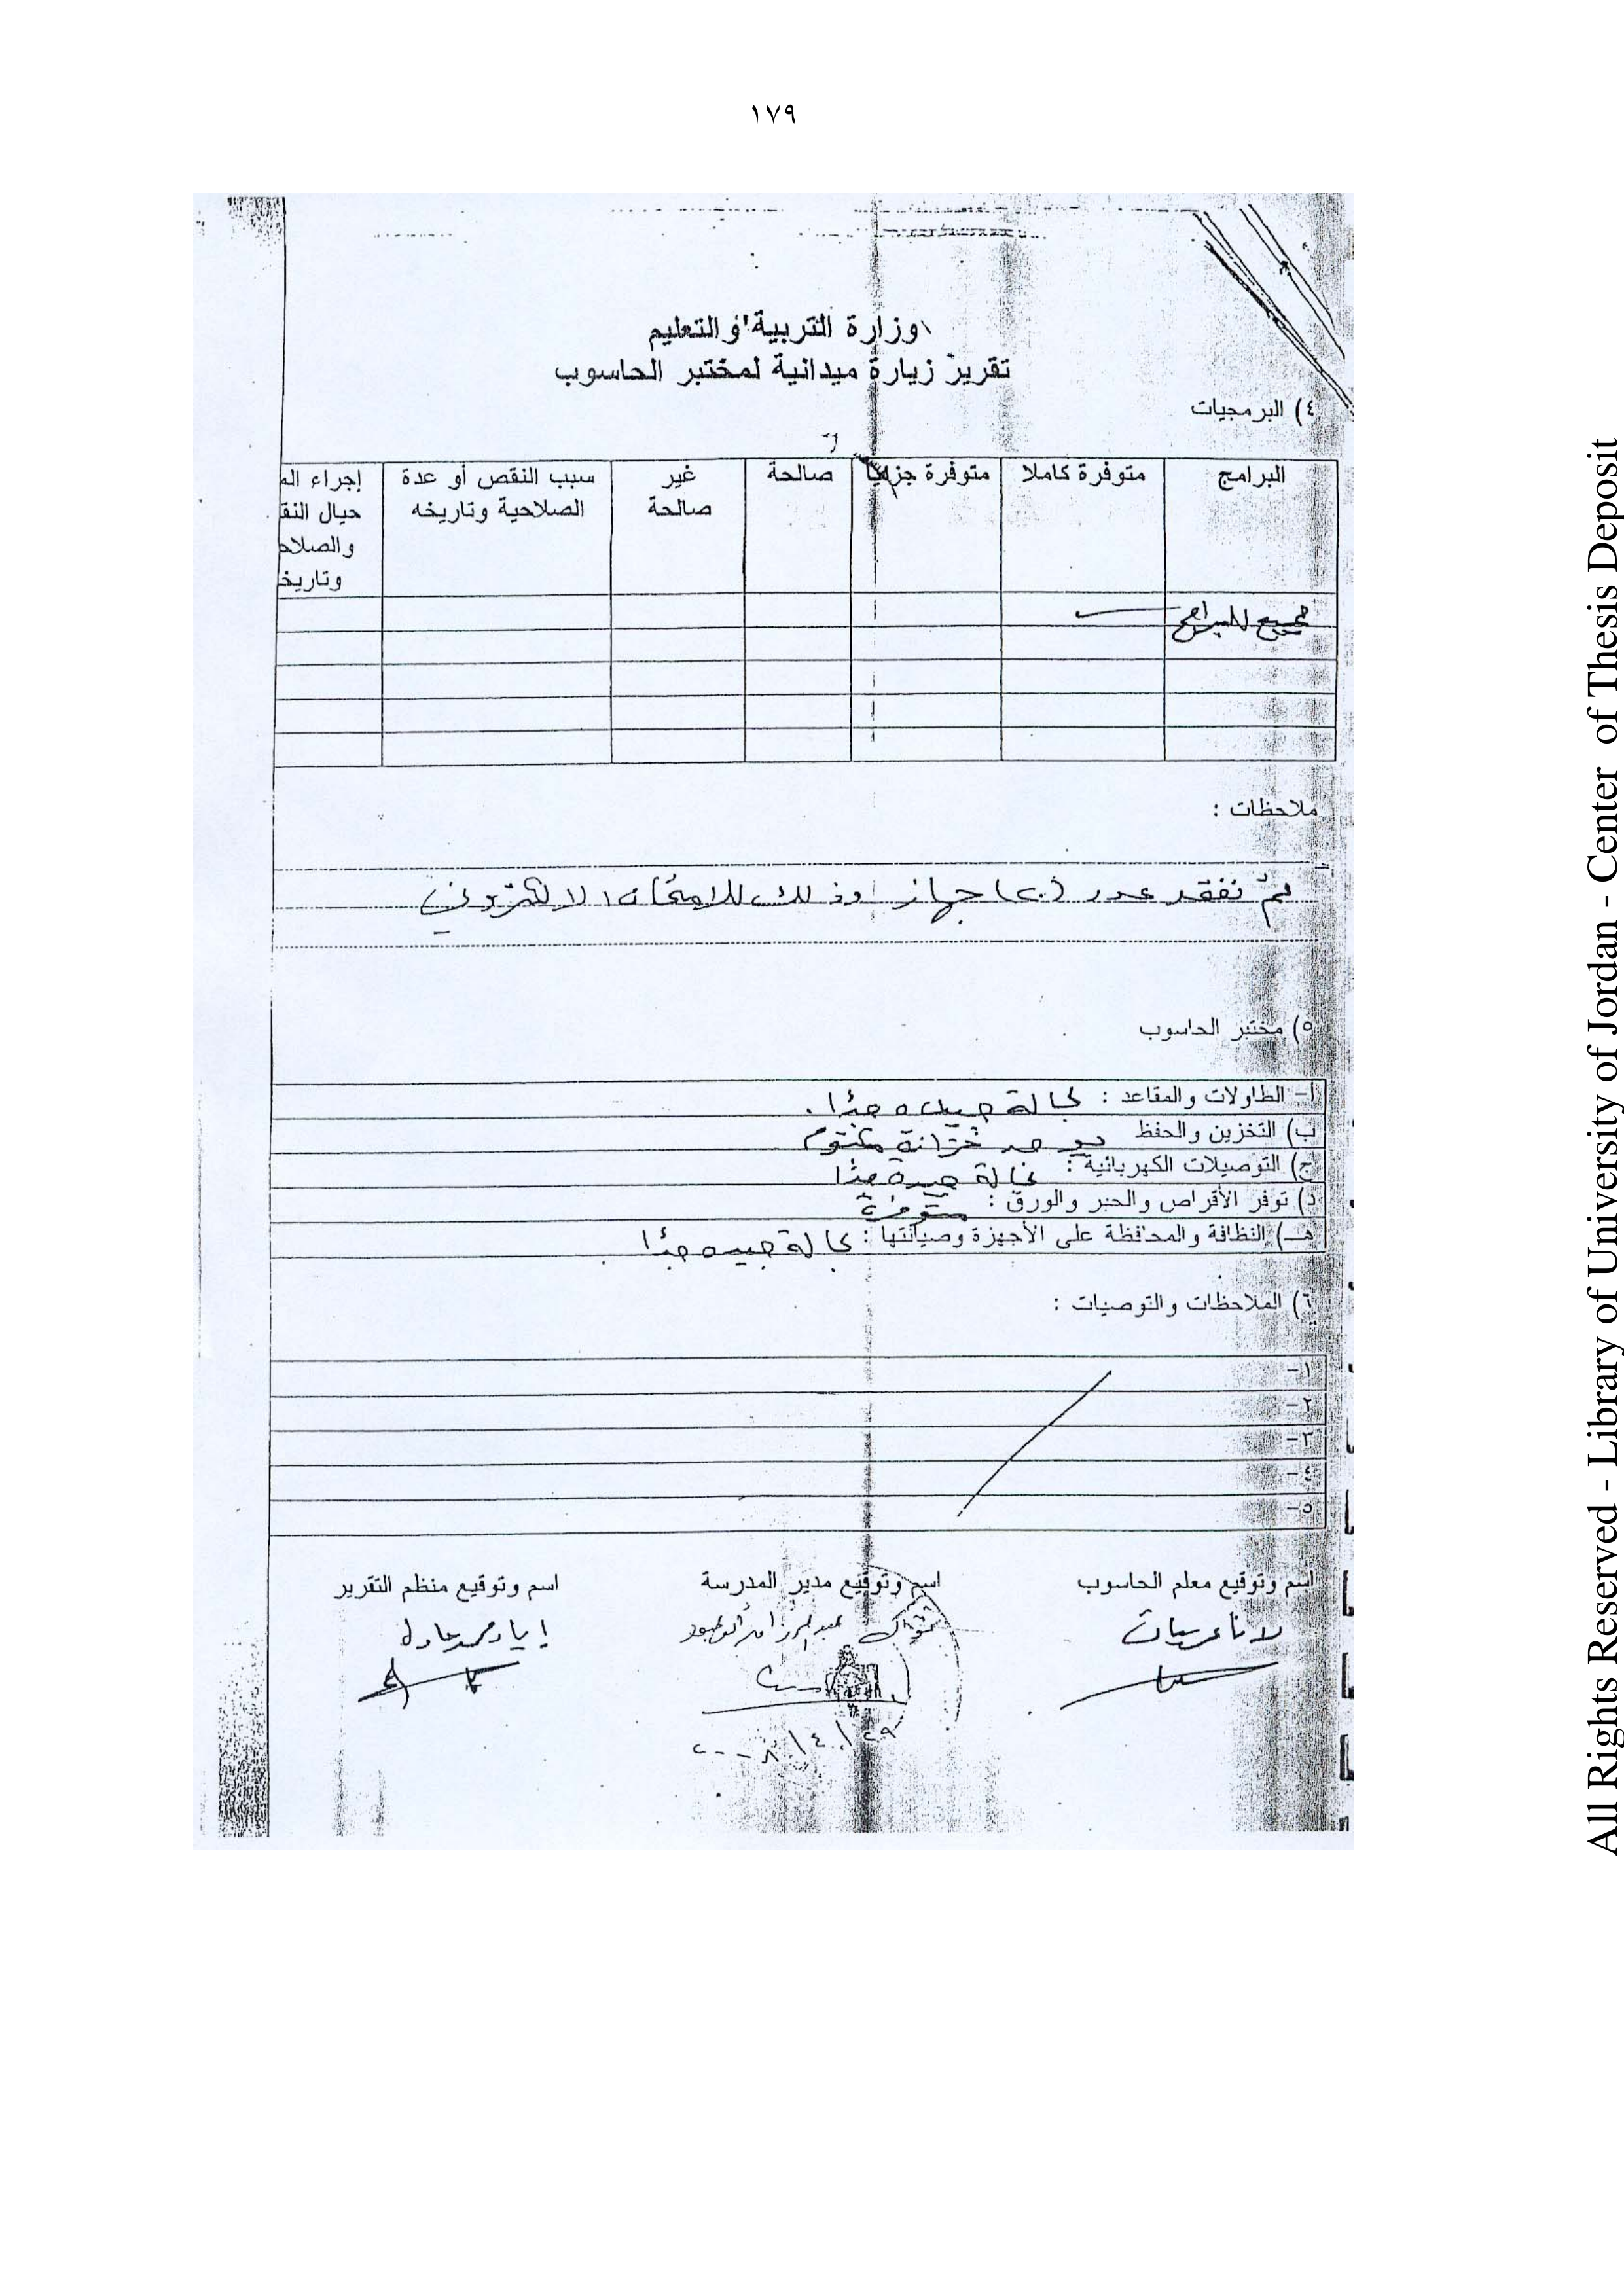 ١٧٩
وزارة التربية والتعليم
تقرير زيارة ميدانية لمختبر الحاسوب
٤) البرمجيات
البرامج
متوفرة كاملا
متوفرة جزئيا
صالحة
غير
صالحة
سبب النقص أو عدة
الصلاحية وتاريخه
إجراء الم
حيال النق
والصلاح
وتاريخ
جميع البرامج
ملاحظات :
تم تفقد عدد (٢٠) جهاز وذلك للامتحان الالكتروني
٥) مختبر الحاسوب
أ- الطاولات والمقاعد : بحالة جيده جدًا .
ب) التخزين والحفظ يوجد خزانة
ج) التوصيلات الكهربائية : بحالة جيدة جدًا
د) توفر الأقراص والحبر والورق : متوفرة
هـ) النظافة والمحافظة على الأجهزة وصيانتها : بحالة جيده جدًا
٦) الملاحظات والتوصيات :
١-
٢-
٣-
٤-
٥-
اسم وتوقيع معلم الحاسوب
اسم وتوقيع مدير المدرسة
اسم وتوقيع منظم التقرير
عبد الرزاق
اياد محمد عادل
٢٠٠٨/٤/٢٩
All Rights Reserved - Library of University of Jordan - Center of Thesis Deposit